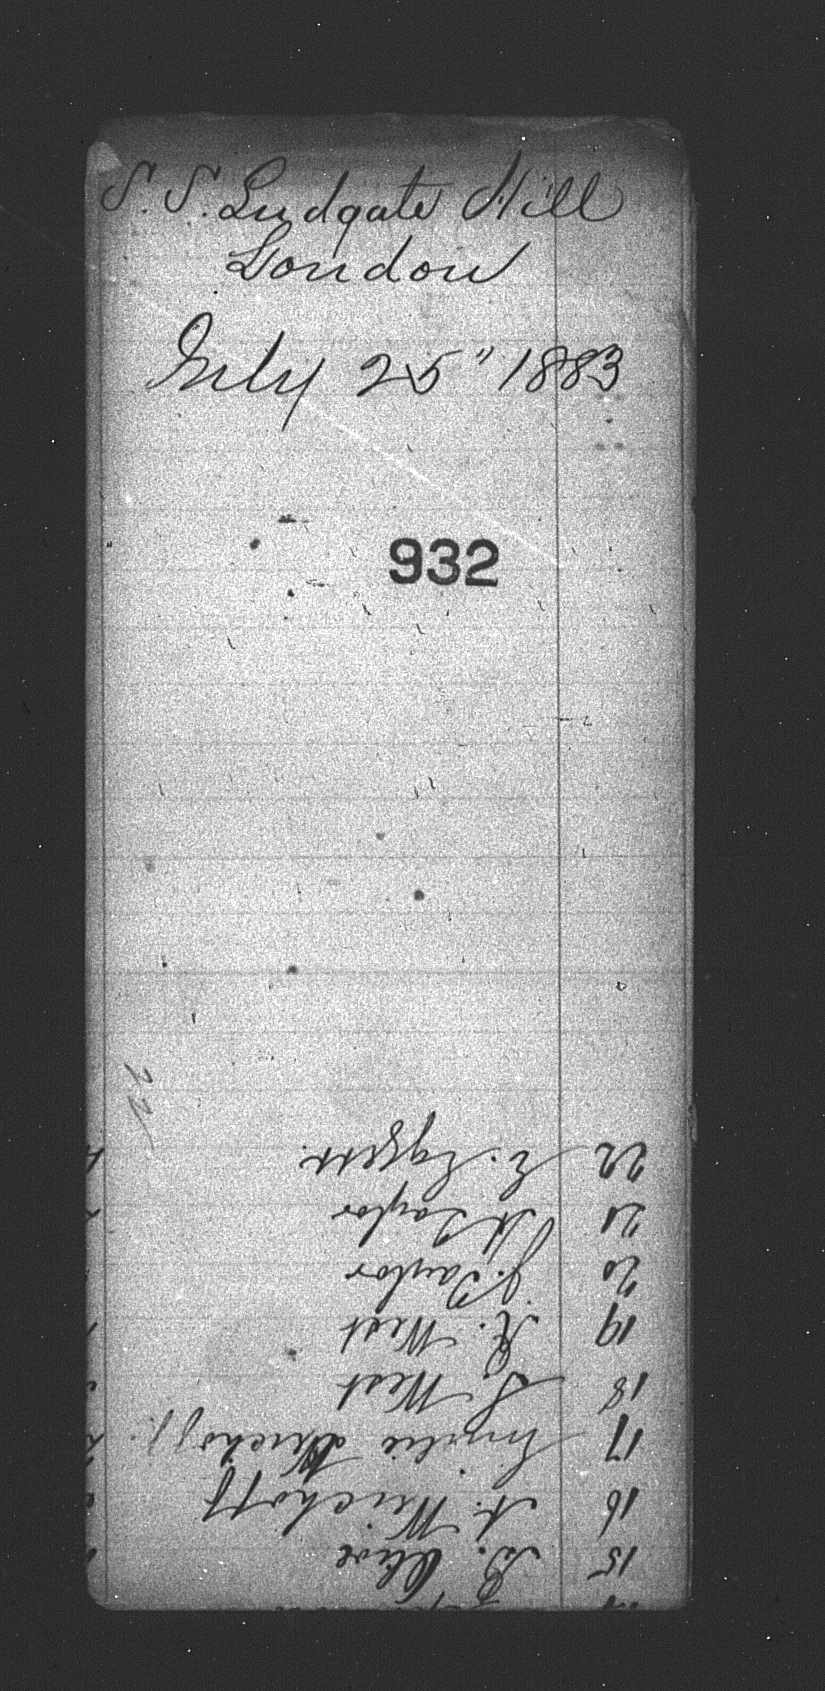 S.S. Ludgate Hill
London
July 25" 1883
932
22
15 B. Clive
16 A. Wuchoff
17 Emilie Wuchoff
18 S. West
19 R. West
20 J. Taylor
21 H. Taylor
22 E. Eggett